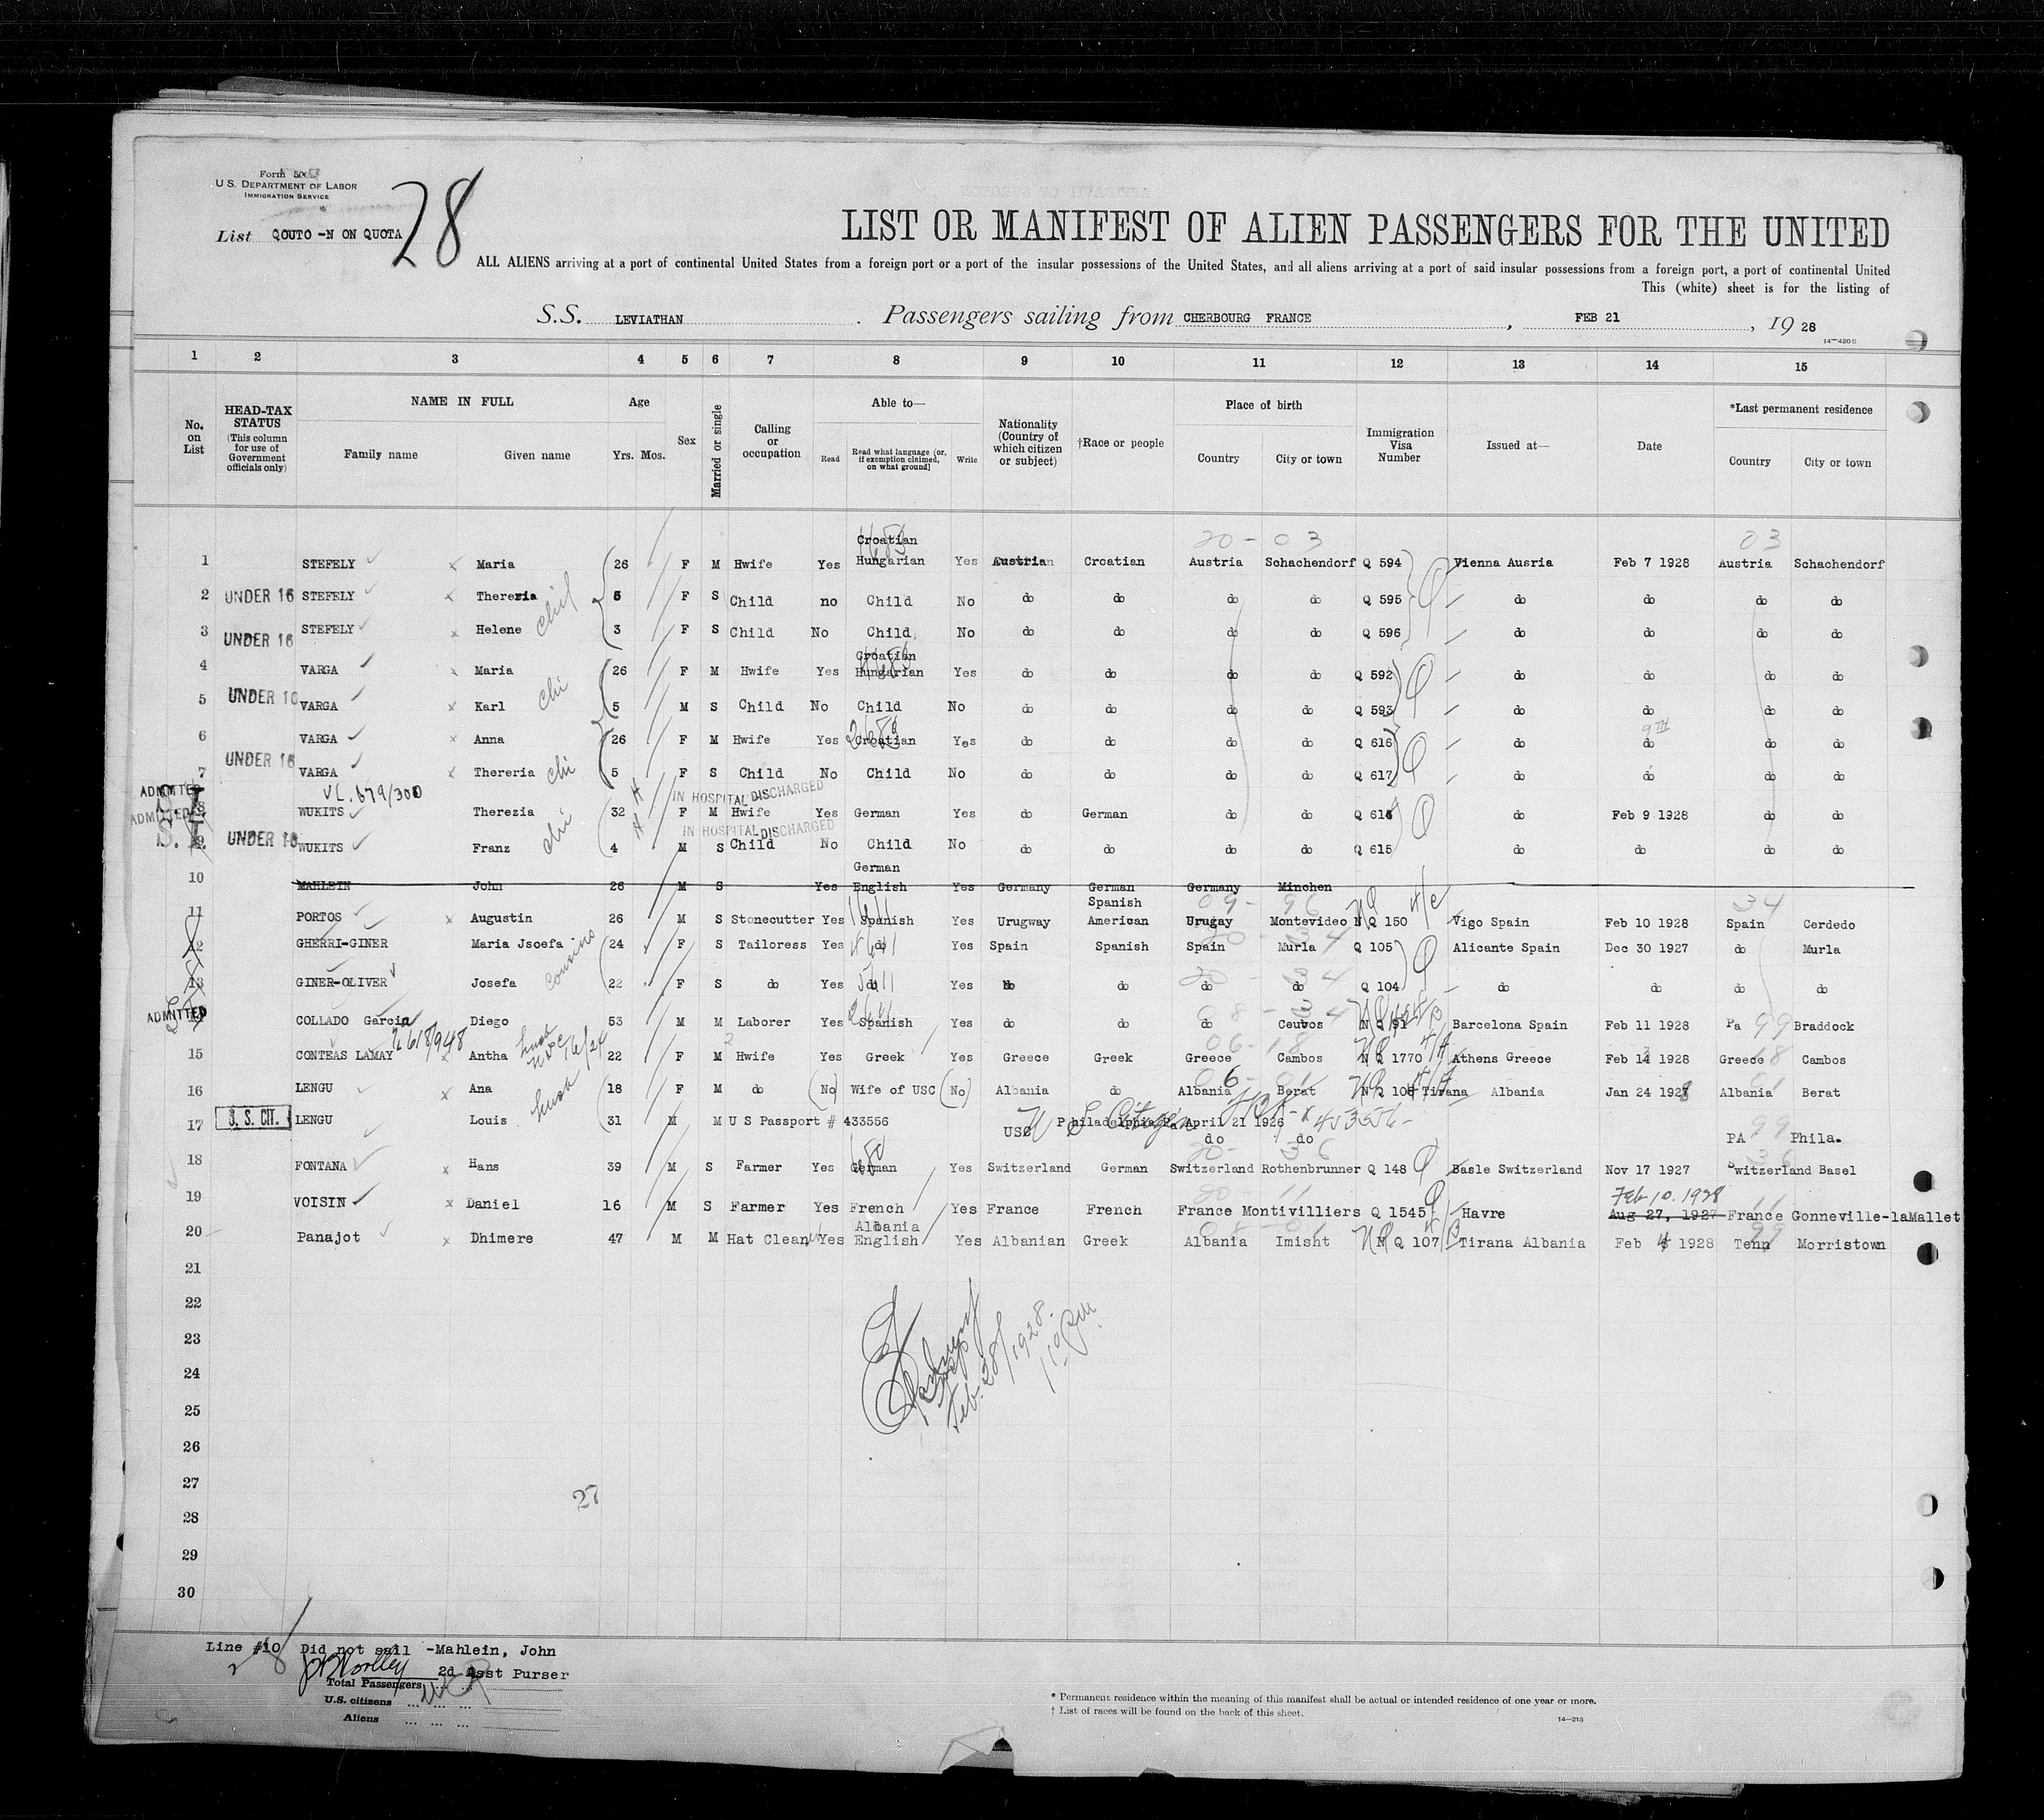 Form 500
U.S. DEPARTMENT OF LABOR
IMMIGRATION SERVICE
28
List QOUTO -N ON QUOTA
LIST OR MANIFEST OF ALIEN PASSENGERS FOR THE UNITED
ALL ALIENS arriving at a port of continental United States from a foreign port or a port of the insular possessions of the United States, and all aliens arriving at a port of said insular possessions from a foreign port, a port of continental United
This (white) sheet is for the listing of
S.S. LEVIATHAN . Passengers sailing from CHERBOURG FRANCE , FEB 21 , 19 28
14-430B
1 2 3 4 5 6 7 8 9 10 11 12 13 14 15
No. on List
HEAD-TAX STATUS (This column for use of Government officials only)
NAME IN FULL
Family name Given name
Age
Yrs. Mos.
Sex
Married or single
Calling or occupation
Able to—
Read Read what language [or, if exemption claimed, on what ground] Write
Nationality (Country of which citizen or subject)
†Race or people
Place of birth
Country City or town
Immigration Visa Number
Issued at—
Date
*Last permanent residence
Country City or town
20-03 03
Croatian
1 STEFELY Maria 26 F M Hwife Yes Hungarian Yes Austria Croatian Austria Schachendorf Q 594 Vienna Ausria Feb 7 1928 Austria Schachendorf
2 UNDER 16 STEFELY Thereria 5 F S Child no Child No do do do do Q 595 do do do do
3 UNDER 16 STEFELY Helene 3 F S Child No Child No do do do do Q 596 do do do do
Croatian
4 VARGA Maria 26 F M Hwife Yes Hungarian Yes do do do do Q 592 do do do do
5 UNDER 16 VARGA Karl chi 5 M S Child No Child No do do do do Q 593 do do do do
9TH
6 VARGA Anna 26 F M Hwife Yes Croatian Yes do do do do Q 616 do do do do
7 UNDER 16 VARGA Thereria chi 5 F S Child No Child No do do do do Q 617 do do do do
ADMITTED VL.679/300 IN HOSPITAL DISCHARGED
8 WUKITS Therezia 32 F M Hwife Yes German Yes do German do do Q 614 do Feb 9 1928 do do
ADMITTED IN HOSPITAL DISCHARGED
S.I. UNDER 16 WUKITS Franz chi 4 M S Child No Child No do do do do Q 615 do do do do
German
10 MAHLEIN John 26 M S Yes English Yes Germany German Germany Minchen
Spanish 09-96 34
11 PORTOS Augustin 26 M S Stonecutter Yes Spanish Yes Urugway American Urugay Montevideo N Q 150 Vigo Spain Feb 10 1928 Spain Cerdedo
12 GHERRI-GINER Maria Jsoefa cousins 24 F S Tailoress Yes do Yes Spain Spanish Spain Murla Q 105 Alicante Spain Dec 30 1927 do Murla
20 - 34
13 GINER-OLIVER Josefa 22 F S do Yes do Yes do do do Q 104 do do do do
ADMITTED
COLLADO Garcia Diego 53 M M Laborer Yes Spanish Yes do do do Ceuvos N Q 91 Barcelona Spain Feb 11 1928 Pa 99 Braddock
06-18
15 CONTEAS LAMAY Antha 22 F M Hwife Yes Greek Yes Greece Greek Greece Cambos N Q 1770 Athens Greece Feb 14 1928 Greece Cambos
16 LENGU Ana 18 F M do (No) Wife of USC (No) Albania do Albania Berat N Q 108 Tirana Albania Jan 24 1928 Albania Berat
17 U. S. CIT. LENGU Louis husb 31 M M U S Passport # 433556 USC Philadelphia Pa April 21 1926
do do PA 99 Phila.
18 FONTANA Hans 39 M S Farmer Yes German Yes Switzerland German Switzerland Rothenbrunner Q 148 Basle Switzerland Nov 17 1927 Switzerland Basel
20-11 Feb 10. 1928 11
19 VOISIN Daniel 16 M S Farmer Yes French Yes France French France Montivilliers Q 1545 Havre Aug 27, 1927 France Gonneville-laMallet
Albania
20 Panajot Dhimere 47 M M Hat Cleaner Yes English Yes Albanian Greek Albania Imisht N Q 107 Tirana Albania Feb 4 1928 Tenn Morristown
21
22
23
24
Feb. 28/1928.
25
26
27
27
28
29
30
Line #10 Did not sail -Mahlein, John
28
2d Asst Purser
Total Passengers
U.S. citizens
Aliens
* Permanent residence within the meaning of this manifest shall be actual or intended residence of one year or more.
† List of races will be found on the back of this sheet.
14-213